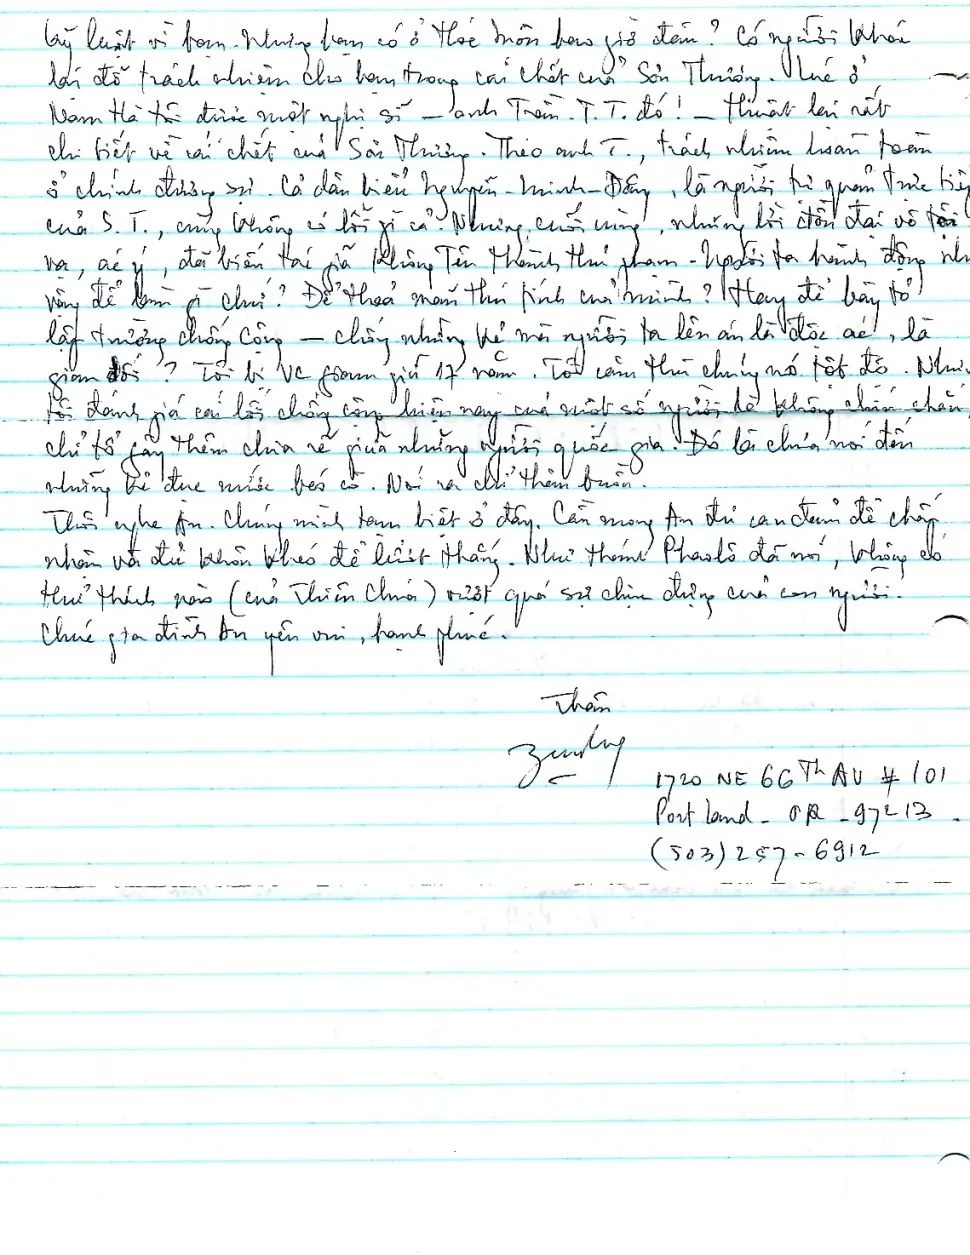 kỷ luật vì bạn. Nhưng bạn có ở Hóc Môn bao giờ đâm? Có người khác
lại đổ trách nhiệm cho bạn trong cái chết của Sơn Thương. Lúc ở
Nam Hà tôi được một nghị sĩ — anh Trần. T. T. đó! — thuật lại rất
chi tiết về cái chết của Sơn Thương. Theo anh T., trách nhiệm hoàn toàn
ở chính đương sự. Cả dân biểu Nguyễn-Minh-Đăng, là người trị quan trực tiếp
của S. T., cũng không có lỗi gì cả. Nhưng, cuối cùng, những lời đồn đại vô
va, ác ý, đã biến tác giả Không Tên thành thủ phạm. Người ta hành động như
vậy để làm gì chứ? Để thoả mãn thú tính của mình? Hay để bày tỏ
lập trường chống Cộng — chống những kẻ mà người ta lên án là độc ác, là
gian dối? Tôi bị VC giam giữ 17 năm. Tôi căm thù chúng nó tột độ. Nhưng
tôi đánh giá cái lối chống cộng hiện nay của một số người là không chân chân,
chỉ tổ gây thêm chia rẽ giữa những người quốc gia. Đó là chưa nói đến
những kẻ đục nước béo cò. Nói ra chỉ thêm buồn.
Thôi nghe Ân. Chúng mình tạm biệt ở đây. Cần mong Ân đủ can đảm để chấp
nhận và đủ khôn khéo để lướt thắng. Như thánh Phaolô đã nói, không có
thử thách nào (của Thiên Chúa) vượt quá sự chịu đựng của con người.
Chúc gia đình Ân yên vui, hạnh phúc.
Thân
1720 NE 66Th AV # 101
Portland - OR - 97213.
(503) 257-6912